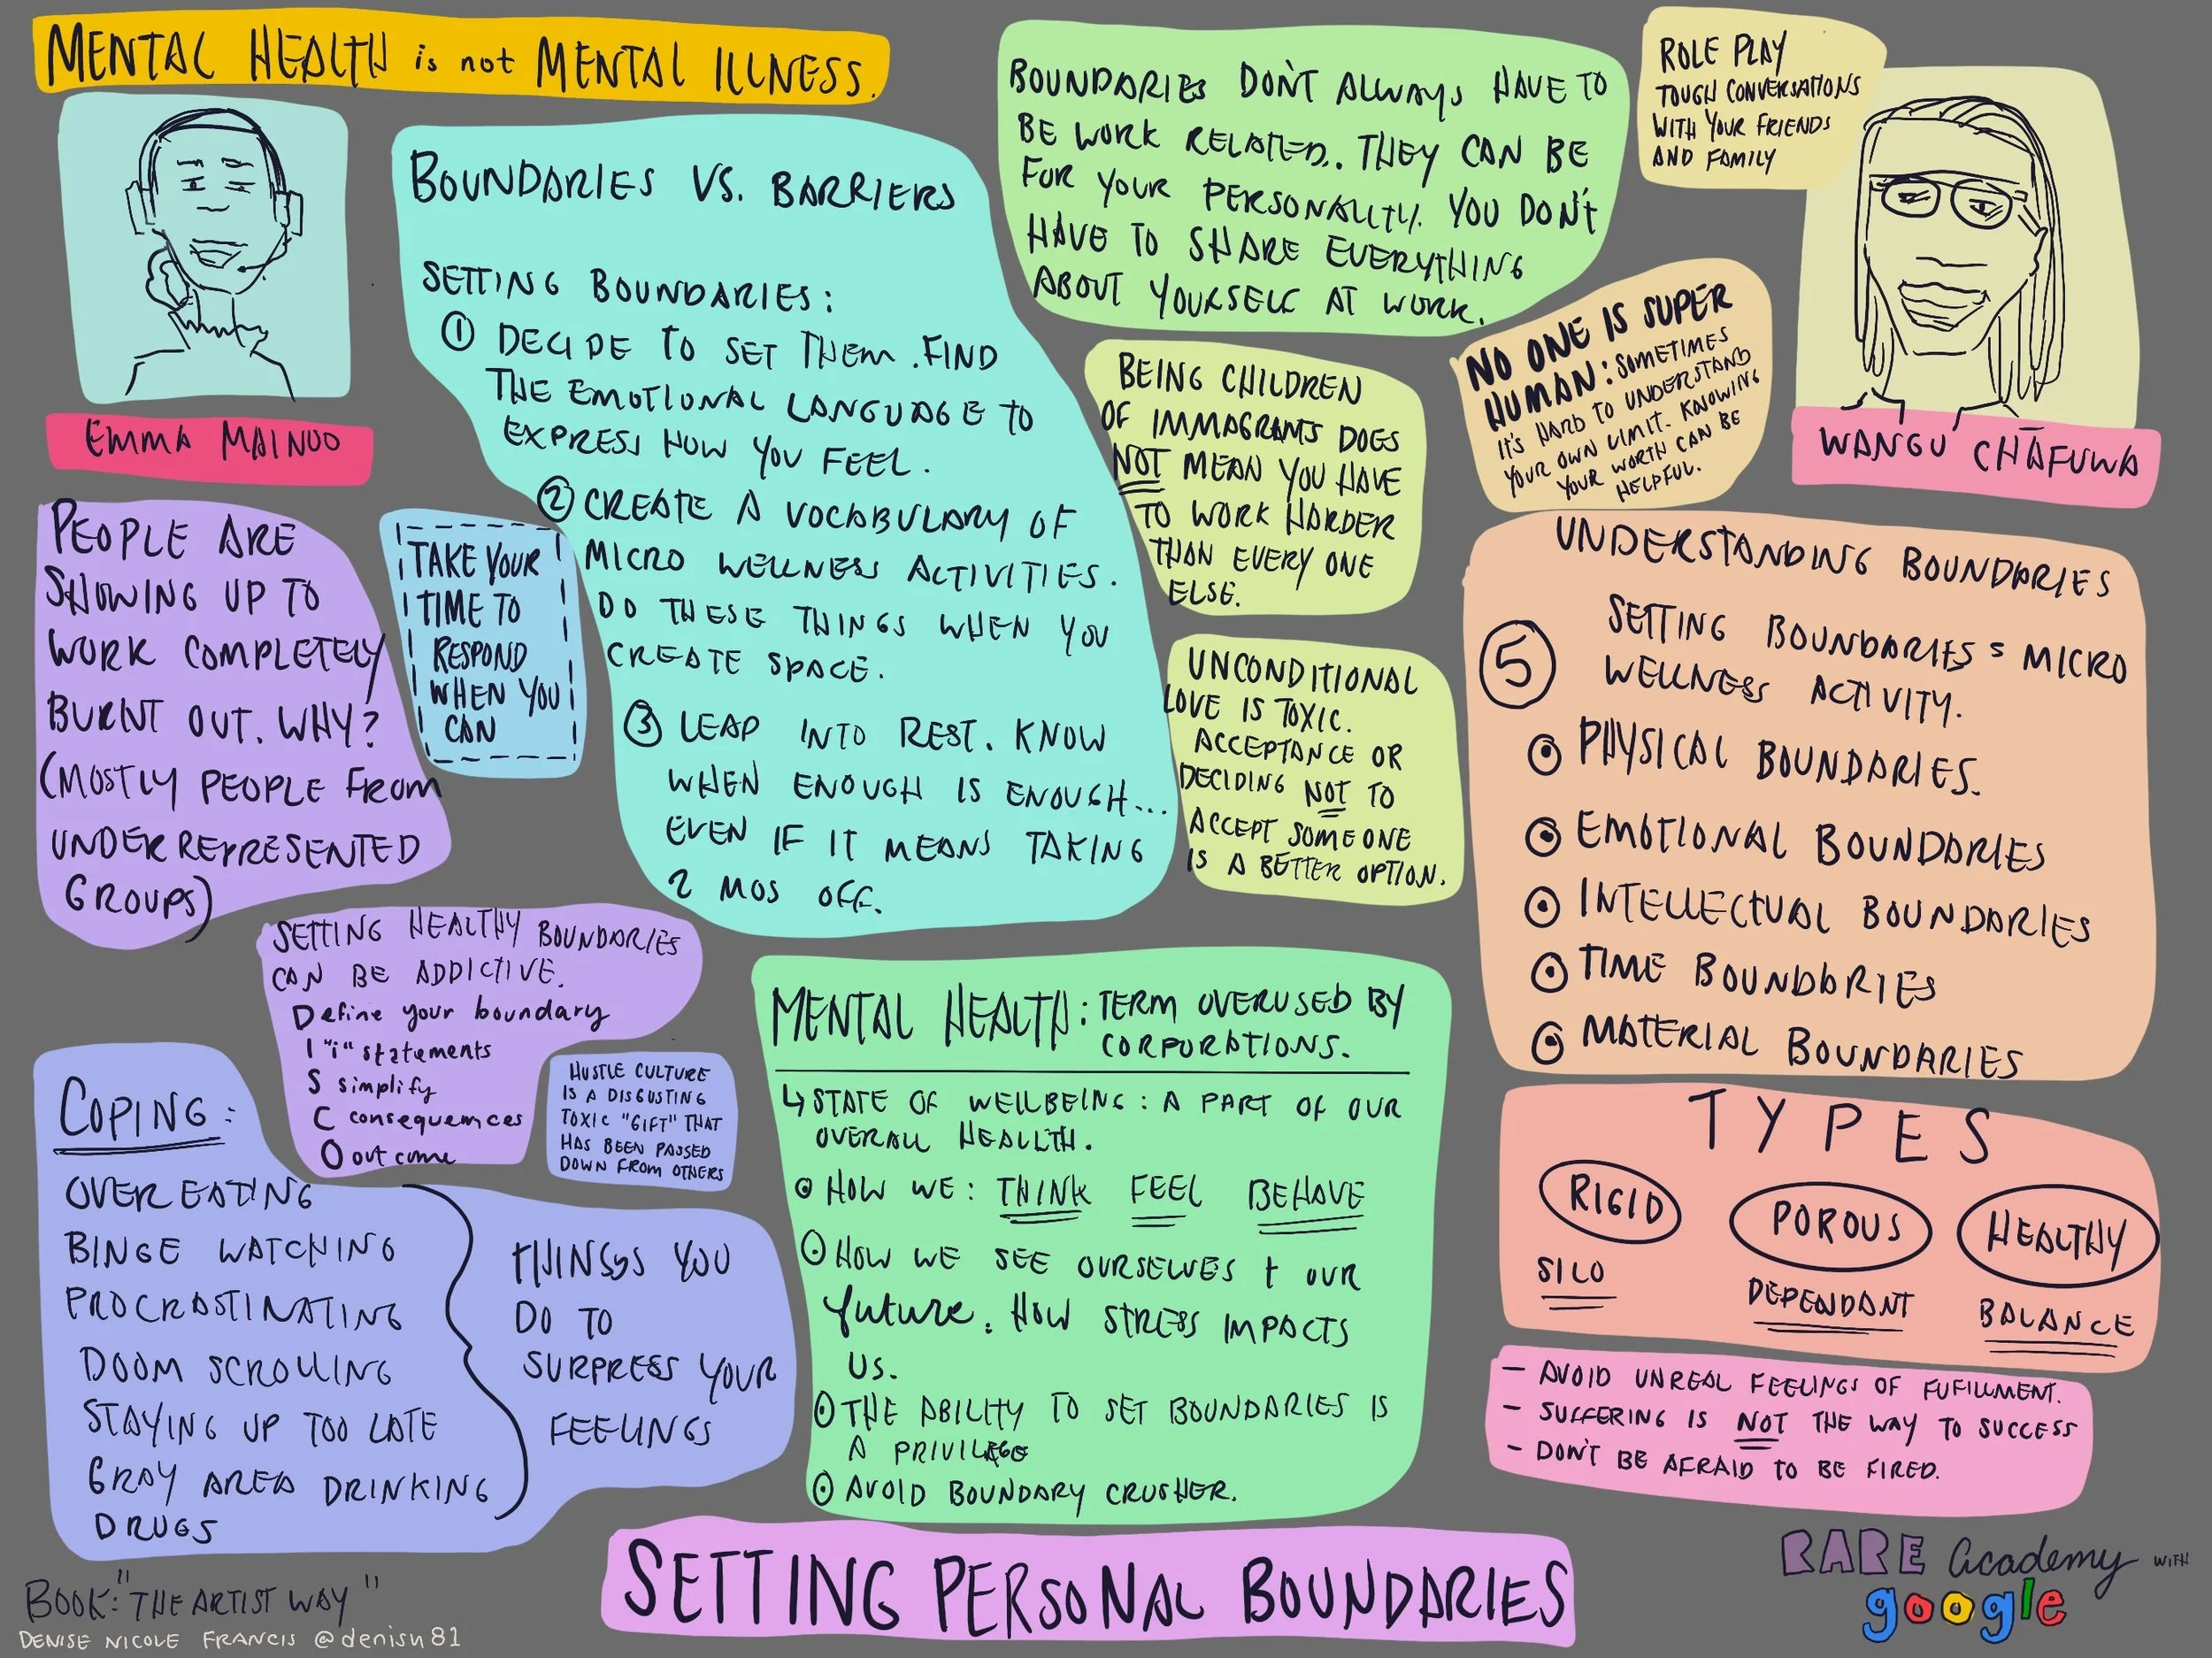 MENTAL HEALTH is not MENTAL ILLNESS.
EMMA MAINOO
BOUNDARIES VS. BARRIERS
SETTING BOUNDARIES:
① DECIDE TO SET THEM. FIND
THE EMOTIONAL LANGUAGE TO
EXPRESS HOW YOU FEEL.
② CREATE A VOCABULARY OF
MICRO WELLNESS ACTIVITIES.
DO THESE THINGS WHEN YOU
CREATE SPACE.
③ LEAP INTO REST. KNOW
WHEN ENOUGH IS ENOUGH...
EVEN IF IT MEANS TAKING
2 MOS OFF.
PEOPLE ARE
SHOWING UP TO
WORK COMPLETELY
BURNT OUT. WHY?
(MOSTLY PEOPLE FROM
UNDERREPRESENTED
GROUPS)
TAKE YOUR
TIME TO
RESPOND
WHEN YOU
CAN
SETTING HEALTHY BOUNDARIES
CAN BE ADDICTIVE.
Define your boundary
I "i" statements
S simplify
C consequences
O outcome
HUSTLE CULTURE
IS A DISGUSTING
TOXIC "GIFT" THAT
HAS BEEN PASSED
DOWN FROM OTHERS
COPING:
OVEREATING
BINGE WATCHING
PROCRASTINATING
DOOM SCROLLING
STAYING UP TOO LATE
GRAY AREA DRINKING
DRUGS
THINGS YOU
DO TO
SURPRESS YOUR
FEELINGS
BOOK: "THE ARTIST WAY"
DENISE NICOLE FRANCIS @denisn81
BOUNDARIES DON'T ALWAYS HAVE TO
BE WORK RELATED.. THEY CAN BE
FOR YOUR PERSONALITY. YOU DON'T
HAVE TO SHARE EVERYTHING
ABOUT YOURSELF AT WORK.
BEING CHILDREN
OF IMMAGRANTS DOES
NOT MEAN YOU HAVE
TO WORK HARDER
THAN EVERY ONE
ELSE.
UNCONDITIONAL
LOVE IS TOXIC.
ACCEPTANCE OR
DECIDING NOT TO
ACCEPT SOMEONE
IS A BETTER OPTION.
MENTAL HEALTH: TERM OVERUSED BY
CORPORATIONS.
↳ STATE OF WELLBEING: A PART OF OUR
OVERALL HEALLTH.
HOW WE: THINK FEEL BEHAVE
HOW WE SEE OURSELVES + OUR
future. HOW STRESS IMPACTS
US.
THE ABILITY TO SET BOUNDARIES IS
A PRIVILEGE
AVOID BOUNDARY CRUSHER.
SETTING PERSONAL BOUNDARIES
ROLE PLAY
TOUGH CONVERSATIONS
WITH YOUR FRIENDS
AND FAMILY
WANGU CHAFUWA
NO ONE IS SUPER
HUMAN: SOMETIMES
IT'S HARD TO UNDERSTAND
YOUR OWN LIMIT. KNOWING
YOUR WORTH CAN BE
HELPFUL.
UNDERSTANDING BOUNDARIES
⑤ SETTING BOUNDARIES = MICRO
WELLNESS ACTIVITY.
PHYSICAL BOUNDARIES.
EMOTIONAL BOUNDARIES
INTELLECTUAL BOUNDARIES
TIME BOUNDARIES
MATERIAL BOUNDARIES
TYPES
RIGID POROUS HEALTHY
SILO DEPENDANT BALANCE
- AVOID UNREAL FEELINGS OF FUFILLMENT.
- SUFFERING IS NOT THE WAY TO SUCCESS
- DON'T BE AFRAID TO BE FIRED.
RARE academy WITH
google